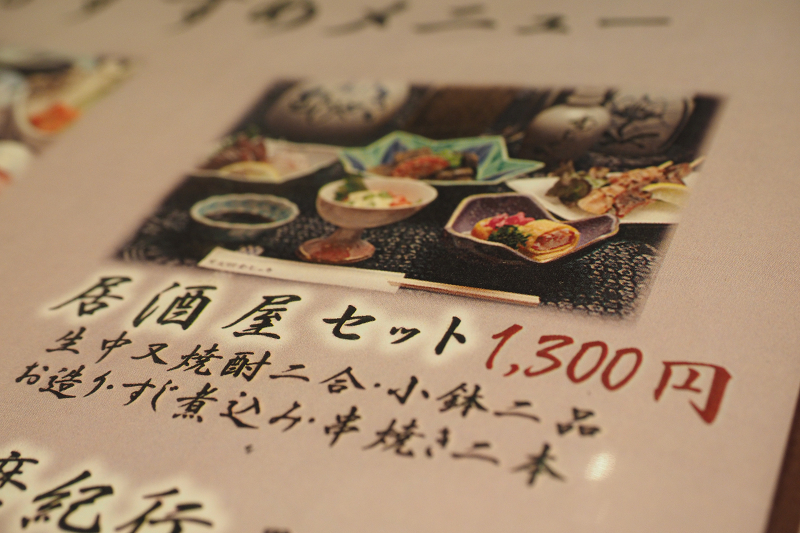 すすめメニュー
居酒屋セット 1,300円
生中又焼酎二合・小鉢二品
お造り・すじ煮込み・串焼き二本
摩紀行